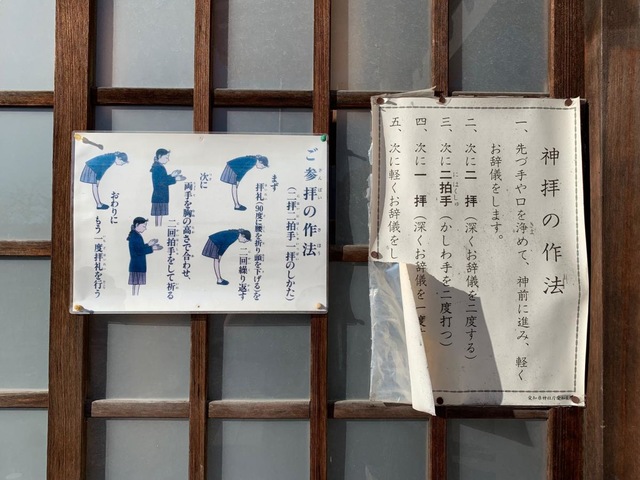 ご参拝の作法
(二拝二拍手一拝のしかた)
まず
拝礼(90度に腰を折り頭を下げる)を
二回繰り返す
次に
両手を胸の高さで合わせ、
二回拍手をして祈る
おわりに
もう一度拝礼を行う
神拝の作法
一、先づ手や口を浄めて、神前に進み、軽く
お辞儀をします。
二、次に二拝(深くお辞儀を二度する)
三、次に二拍手(かしわ手を二度打つ)
四、次に一拝(深くお辞儀を一度
五、次に軽くお辞儀をし